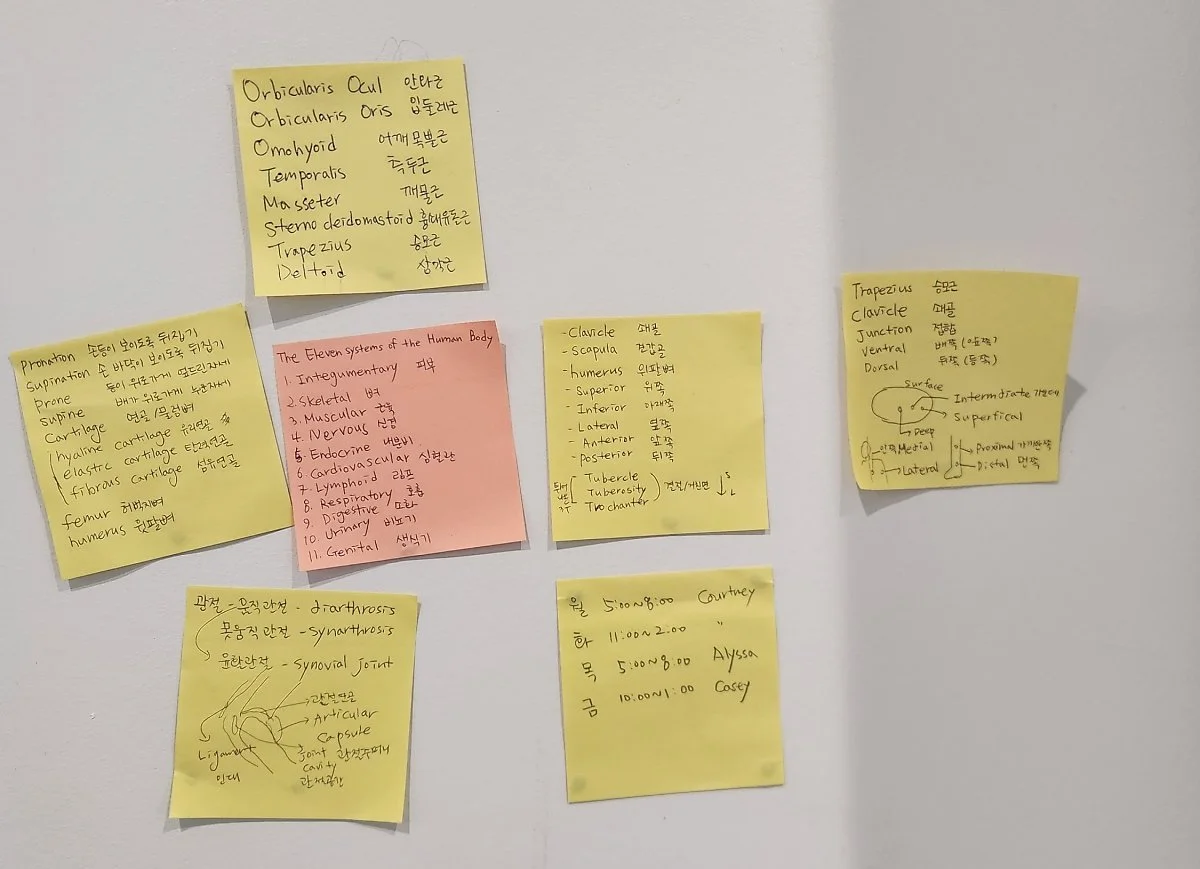 Orbicularis Ocul 안라근
Orbicularis Oris 입둘레근
Omohyoid 어깨목뿔근
Temporalis 측두근
Masseter 깨물근
Sterno cleidomastoid 흉대유돌근
Trapezius 승모근
Deltoid 삼각근
Pronation 손등이 보이도록 뒤집기
Supination 손 바닥이 보이도록 뒤집기
Prone 등이 위로가게 엎드린자세
supine 배가 위로가게 누운자세
Cartilage 연골/물렁뼈
hyaline cartilage 유리연골
elastic cartilage 탄력연골
fibrous cartilage 섬유연골
femur 허벅지뼈
humerus 윗팔뼈
The Eleven systems of the Human Body
1. Integumentary 피부
2. Skeletal 뼈
3. Muscular 근육
4. Nervous 신경
5. Endocrine 내분비
6. Cardiovascular 심혈관
7. Lymphoid 림프
8. Respiratory 호흡
9. Digestive 소화
10. Urinary 비뇨기
11. Genital 생식기
- Clavicle 쇄골
- Scapula 견갑골
- humerus 위팔뼈
- Superior 위쪽
- Inferior 아래쪽
- Lateral 옆쪽
- Anterior 앞쪽
- posterior 뒤쪽
Tubercle
Tuberosity
Trochanter
결절/거친면
S
L
Trapezius 승모근
Clavicle 쇄골
Junction 접합
Ventral 배쪽 (앞쪽)
Dorsal 뒤쪽 (등쪽)
Surface
Intermdiate
Superfical
Deep
안쪽 Medial
Lateral
Proximal 가까운쪽
Distal 먼쪽
관절 - 움직관절 - diarthrosis
못움직관절 - Synarthrosis
윤활관절 - Synovial joint
관절연골
Articular
capsule
Ligament
인대
Joint 관절주머니
cavity
관절공간
월 5:00~8:00 Courtney
화 11:00~2:00 "
목 5:00~8:00 Alyssa
금 10:00~1:00 Casey